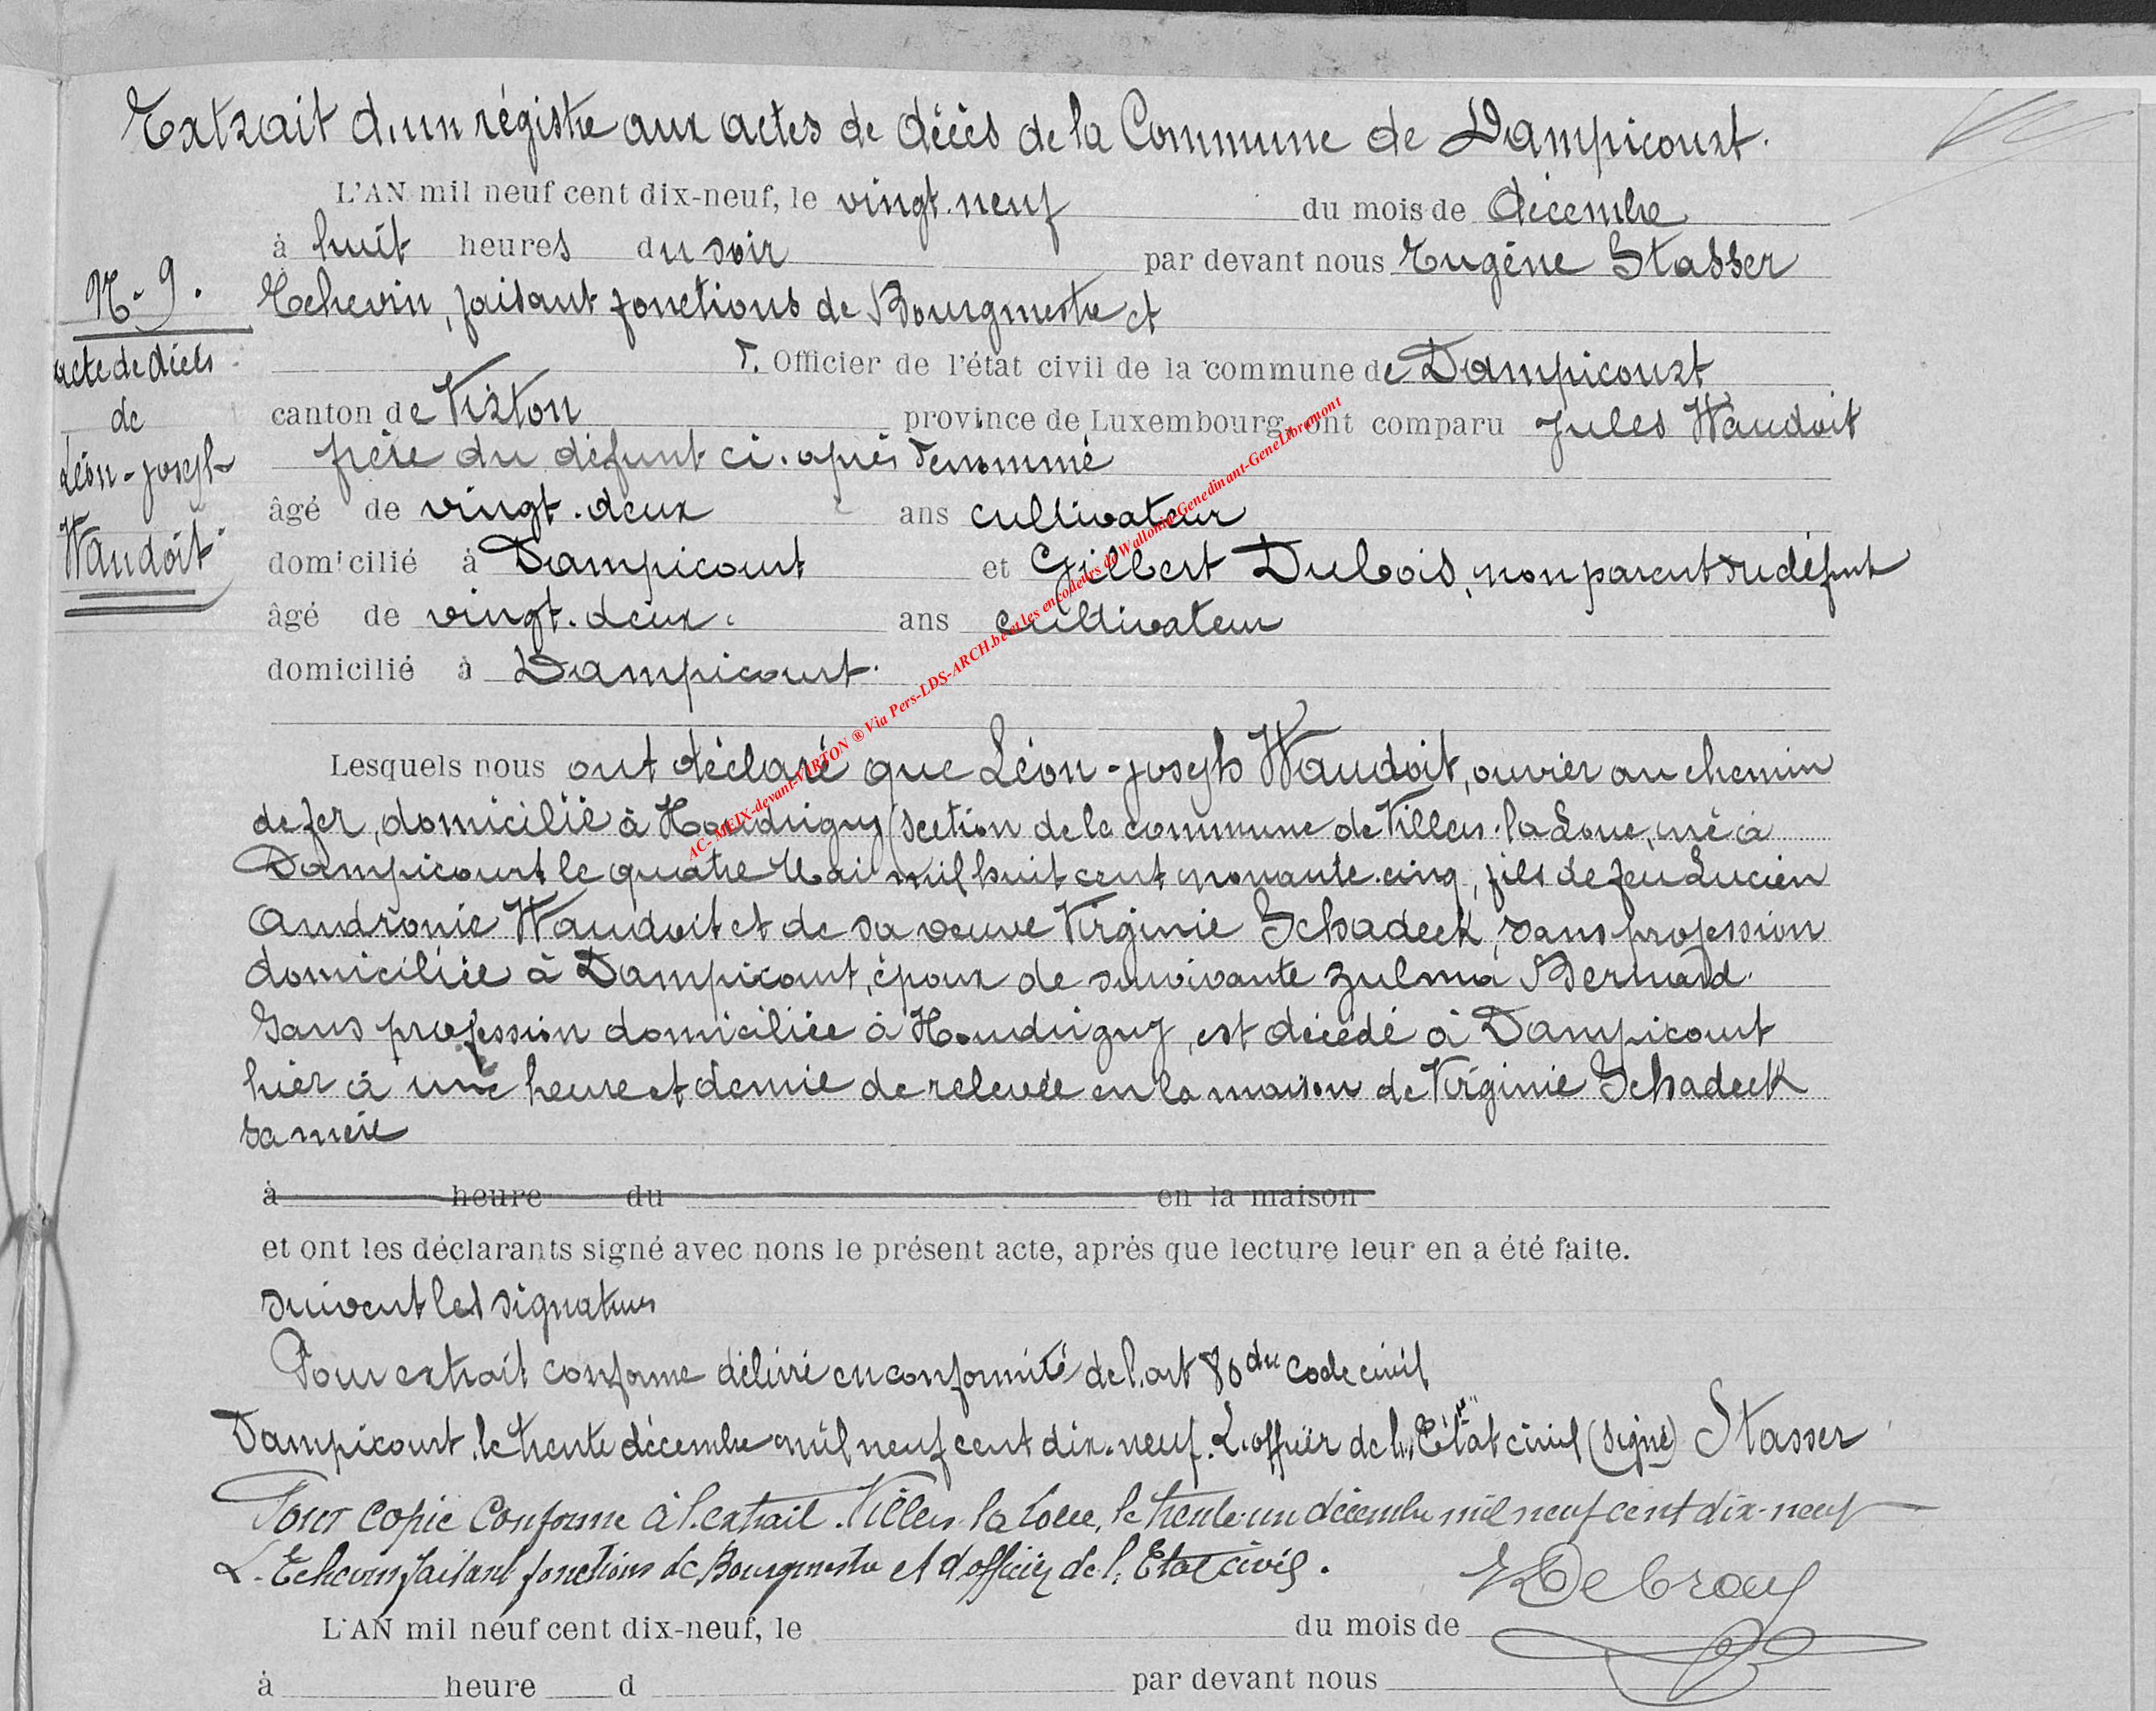 Extrait d'un régistre aux actes de décès de la Commune de Dampicourt.
L'AN mil neuf cent dix-neuf, le vingt-neuf du mois de décembre
à huit heures du soir par devant nous Eugène Stasser
Echevin, faisant fonctions de Bourgmestre et
Officier de l'état civil de la commune de Dampicourt
canton de Virton province de Luxembourg, ont comparu Jules Waudoit
frère du défunt ci-après dénommé
âgé de vingt-deux ans cultivateur
domicilié à Dampicourt et Gilbert Dubois, non parent du défunt
âgé de vingt-deux ans cultivateur
domicilié à Dampicourt.
N-9.
acte de décès
de
Léon-Joseph
Waudoit
Lesquels nous ont déclaré que Léon-Joseph Waudoit, ouvrier au chemin
de fer, domicilié à Houdrigny (section de la commune de Villers-la-Loue, né à
Dampicourt le quatre Mai mil huit cent nonante-cinq, fils de feu Lucien
Andronie Waudoit et de sa veuve Virginie Schadeck, sans profession
domiciliée à Dampicourt, époux de survivante Zulma Bernard
Sans profession domiciliée à Houdrigny, est décédé à Dampicourt
hier à une heure et demie de relevée en la maison de Virginie Schadeck
sa mère
à heure du en la maison
et ont les déclarants signé avec nons le présent acte, après que lecture leur en a été faite.
suivent les signatures
Pour extrait conforme délivré en conformité de l'art 80 du Code civil
Dampicourt, le trente décembre mil neuf cent dix-neuf. L'officier de l'Etat civil (signé) Stasser
Pour copie conforme à l'extrait. Villers-la-Loue, le trente-un décembre mil neuf cent dix-neuf
L'Echevin faisant fonctions de Bourgmestre et d'officier de l'Etat civil.
Debray
L'AN mil neuf cent dix-neuf, le du mois de
à heure d par devant nous
AC- MEIX-devant-VIRTON ® Via Pers-LDS-ARCH.be et les encodeurs de Wallonia-Genedinant-GeneLibramont